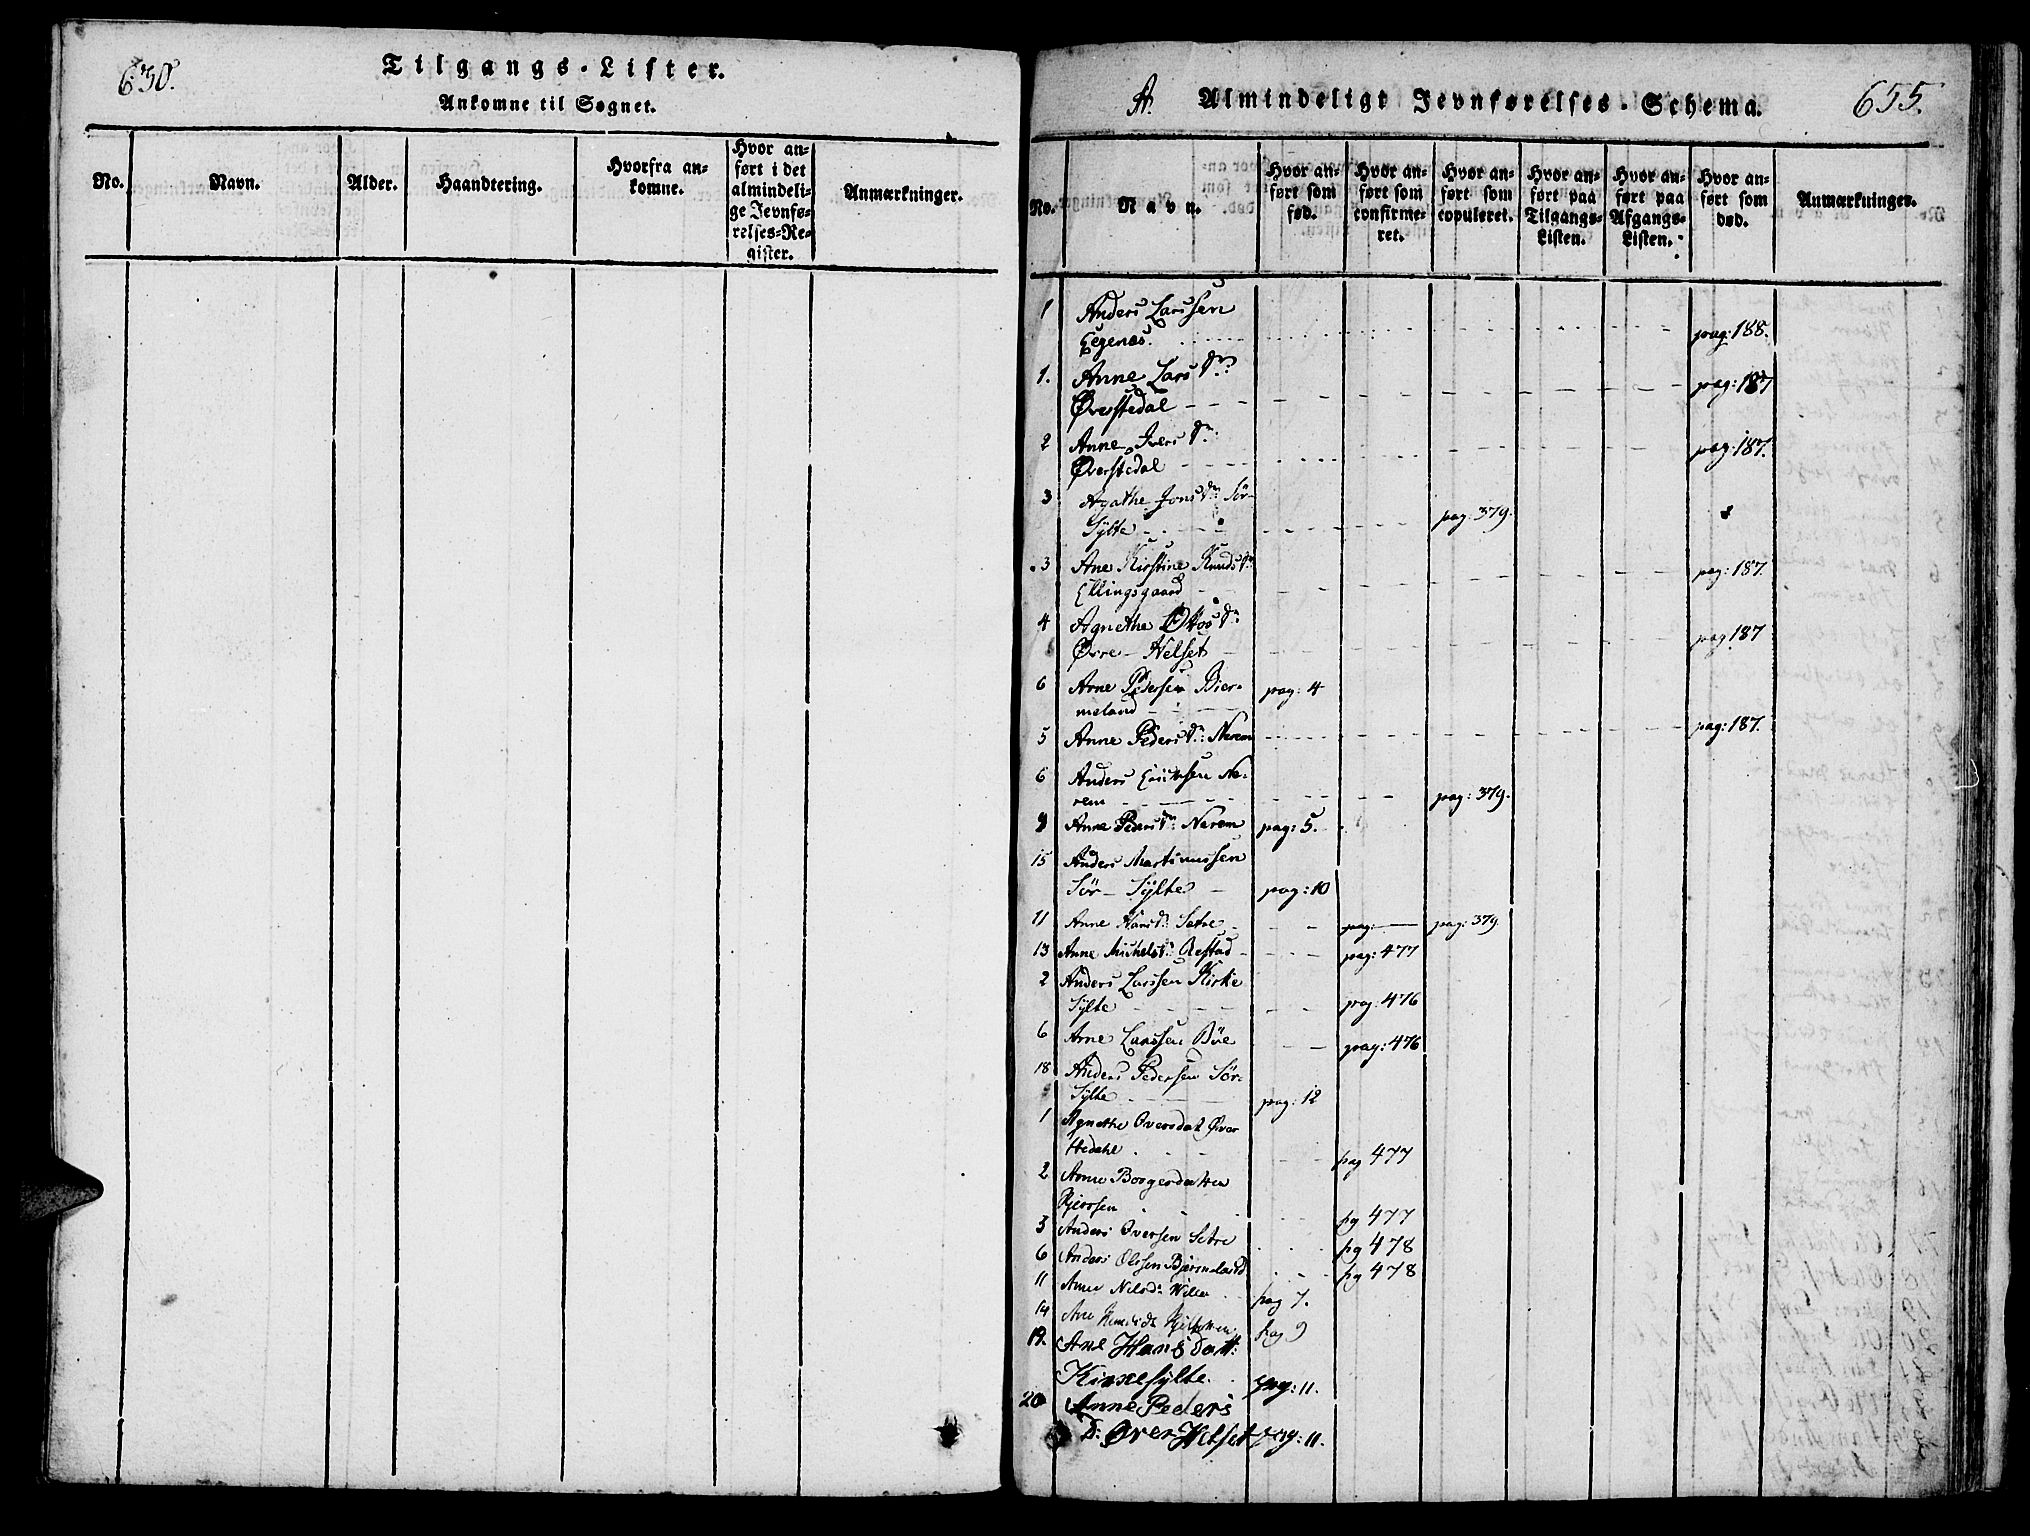 630.
Tilgangs-Lister.
Ankomne til Sognet.
No.
Navn.
Alder.
Haandtering.
Hvorfra an-
komne.
Hvor an-
ført i det
almindeli-
ge Jevnfø-
relses-Re-
gister.
Anmærkninger.
A. Almindeligt Jevnførelses-Schema. 655.
No.
Navn.
Hvor an-
ført som
fød.
Hvor an-
ført som
confirme-
ret.
Hvor an-
ført som
copuleret.
Hvor an-
ført paa
Tilgangs-
Listen.
Hvor an-
ført paa
Afgangs-
Listen.
Hvor an-
ført som
død.
Anmærkninger.
1 Anders Larssen
Egenæs. pag: 188.
1. Anne Lars Dr:
Øverstedal pag: 187
2 Anne Ivers Dr:
Øverstedal pag: 187.
3 Agathe Jons Dr: Sør-
Sylte pag: 379.
3 Ane Kirstine Knuds Dr:
Ellingsgaard pag: 187.
4 Agnethe Ottos Dr:
Øvre-Helset pag 187
6 Arne Pedersen Bier-
meland pag: 4
5 Anne Peders Dr: Nerem pag: 187.
6 Anders Ericksen Ne-
rem pag: 379.
9 Anne Peders Dr: Nerem pag: 5.
15 Anders Martinussen
Sør-Sylte pag: 10
11 Anne Hans Dr: Setre pag: pag: 379.
13 Anne Michels Dr: Restad pag: 477
2 Anders Larssen Kirke
Sylte pag: 476
6 Arne Larssen Böe pag: 476
18 Anders Pedersen Sør-
Sylte pag: 12
1 Agnethe Oversdat Øver
stedahl pag 477
2 Anne Borgersdatter
pg 477
3 Anders Oversen Setre pg 478
6 Anders Olssen Bjermeland pg 478
11 Anne Nilsd: pag 7.
14 Ane pag 9
19. Ane Hans Datt:
Kirkesylte. pag: 11.
20 Anne Peders
D: Øver Helset pag: 11.